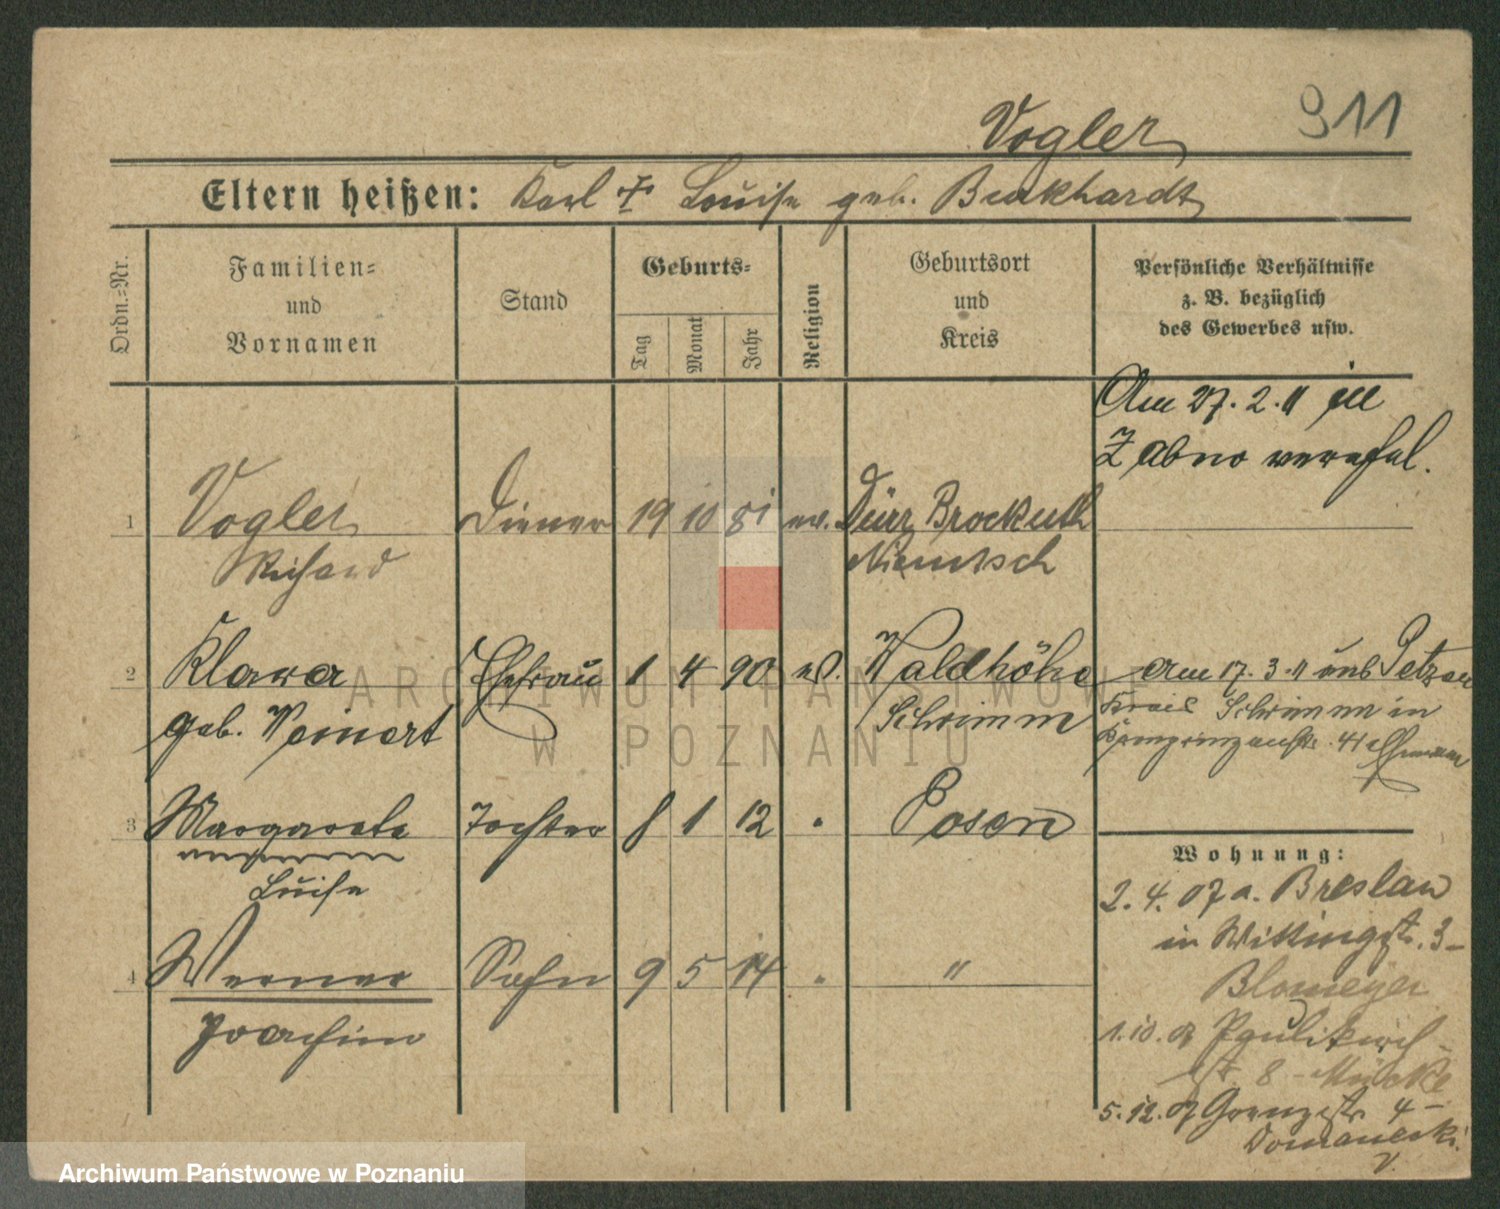 911
Vogler
Eltern heißen: Karl † Louise geb. Burkhardt
Ordn.=Nr.
Familien=
und
Vornamen
Stand
Geburts=
Tag
Monat
Jahr
Religion
Geburtsort
und
Kreis
Persönliche Verhältnisse
z. B. bezüglich
des Gewerbes usw.
Am 27. 2. 11 in
Zabno verehel.
1 Vogler Diener 19 10 81 ev. Dürr Brockuth
Richard Niemtsch
2 Klara Ehefrau 1 4 90 ev. Waldhöhe
geb. Weinert Schrimm
Am 17. 3. 11 unb
Kreis Schrimm in
Kronprinzenstr. 41
3 Margarete Tochter 8 1 12 " Posen
Luise
4 Werner Sohn 9 5 14 " "
Joachim
Wohnung:
2. 4. 07 a. Breslau
in Wittingstr. 3 –
Blomeyer
1. 10. 07 Paulikirch-
str. 8 – Mücke
5. 12. 07 Grenzstr. 4 –
Domanecki
ARCHIWUM PAŃSTWOWE
W POZNANIU
Archiwum Państwowe w Poznaniu